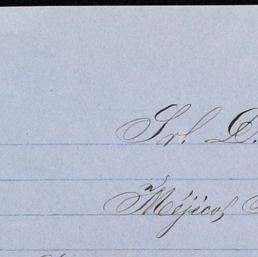 Srl. D.
Méjico,